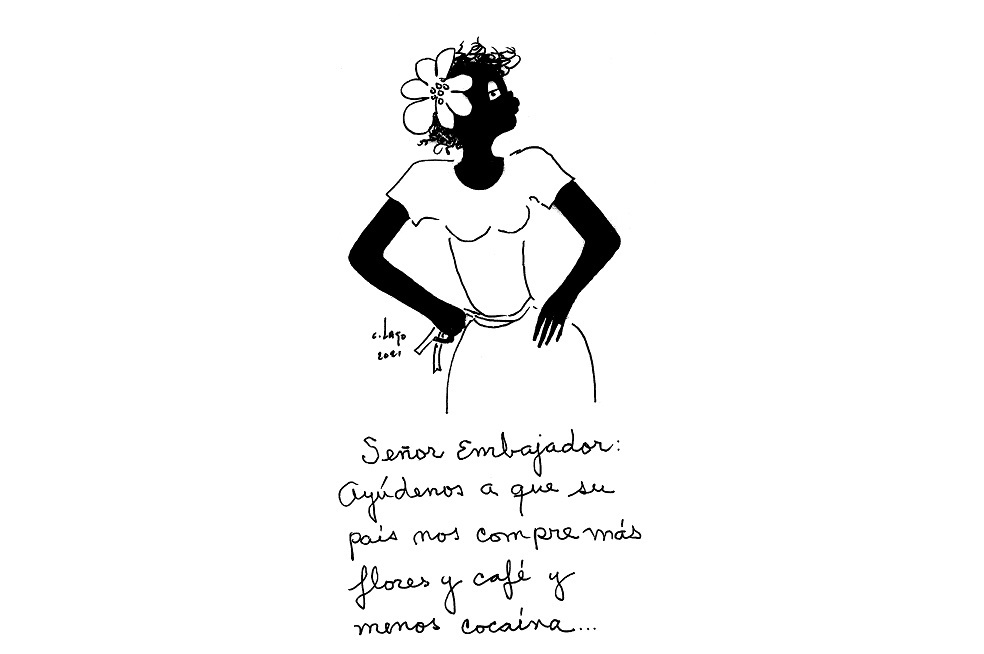 C. Lago
2021
Señor Embajador:
Ayúdenos a que su
país nos compre más
flores y café y
menos cocaína...